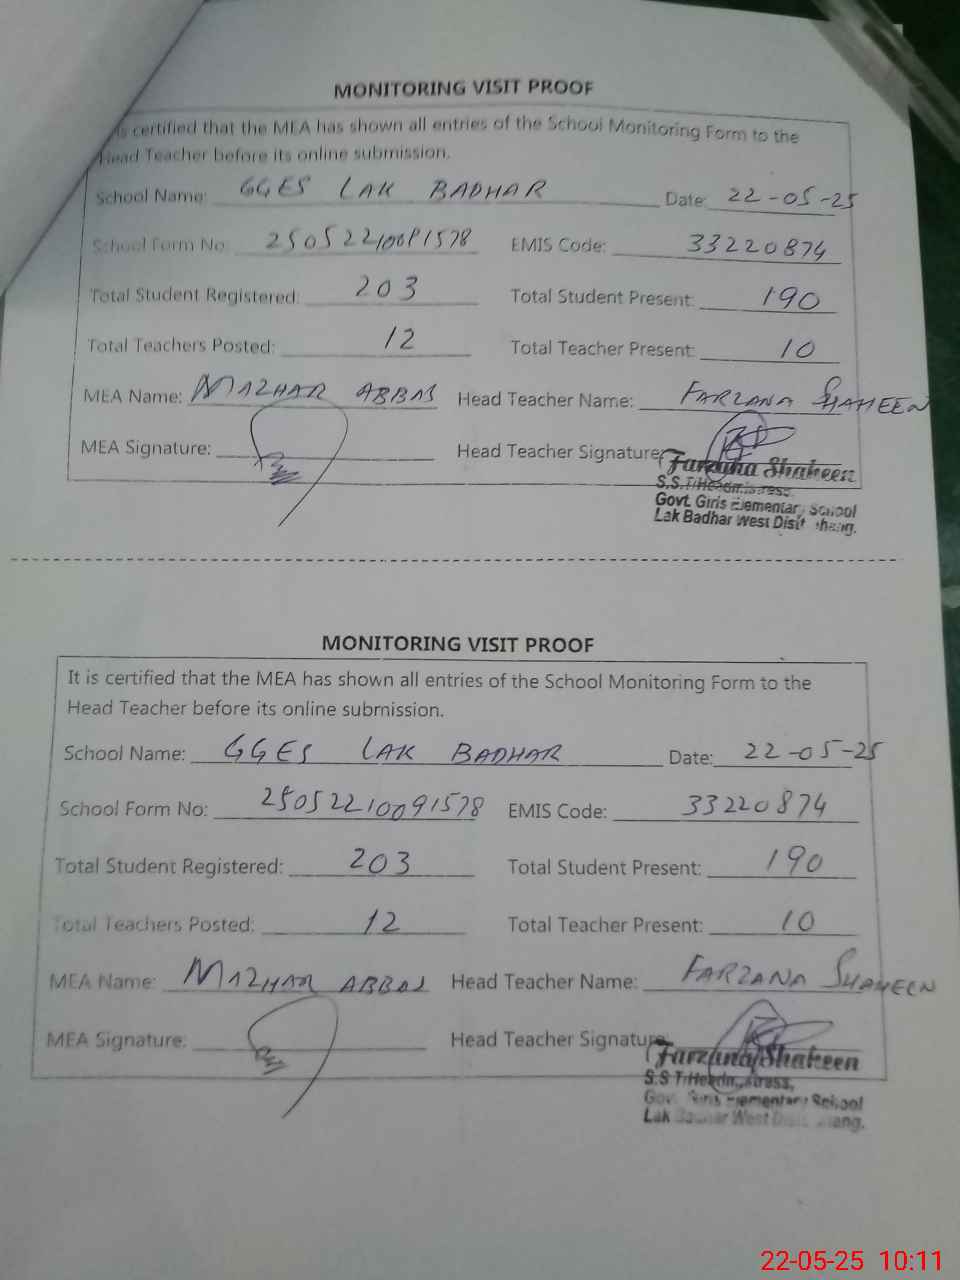 MONITORING VISIT PROOF
is certified that the MEA has shown all entries of the School Monitoring Form to the
Head Teacher before its online submission.
School Name: GGES LAK BADHAR Date: 22-05-25
School Form No: 25052210091578 EMIS Code: 33220874
Total Student Registered: 203 Total Student Present: 190
Total Teachers Posted: 12 Total Teacher Present: 10
MEA Name: MAZHAR ABBAS Head Teacher Name: FARZANA SHAHEEN
MEA Signature: Head Teacher Signature
Farzana Shaheen
S.S.T/Headmistress,
Govt. Girls Elementary School
Lak Badhar West Distt Jhang.
MONITORING VISIT PROOF
It is certified that the MEA has shown all entries of the School Monitoring Form to the
Head Teacher before its online submission.
School Name: GGES LAK BADHAR Date: 22-05-25
School Form No: 25052210091578 EMIS Code: 33220874
Total Student Registered: 203 Total Student Present: 190
Total Teachers Posted: 12 Total Teacher Present: 10
MEA Name: MAZHAR ABBAS Head Teacher Name: FARZANA SHAHEEN
MEA Signature: Head Teacher Signature
Farzana Shaheen
S.S.T/Headmistress,
Govt. Girls Elementary School
Lak Badhar West Distt Jhang.
22-05-25 10:11